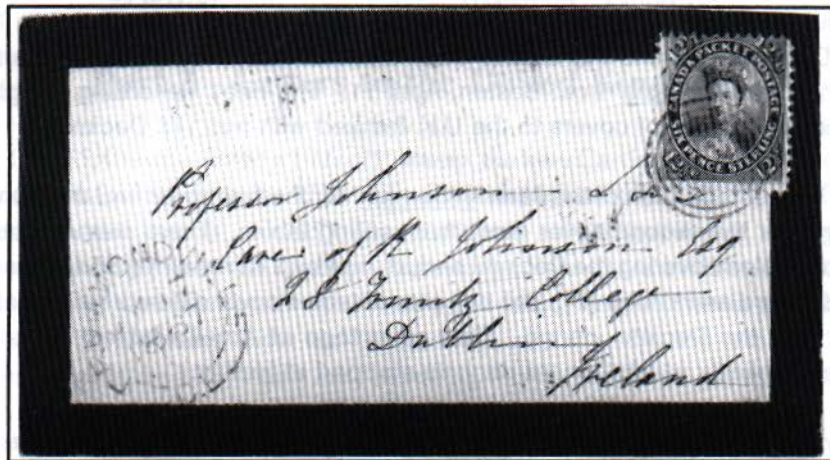 CANADA PACKET POSTAGE
SIX PENCE STERLING
Professor Johnson
Care of R Johnson Esq
28 Trinity College
Dublin
Ireland